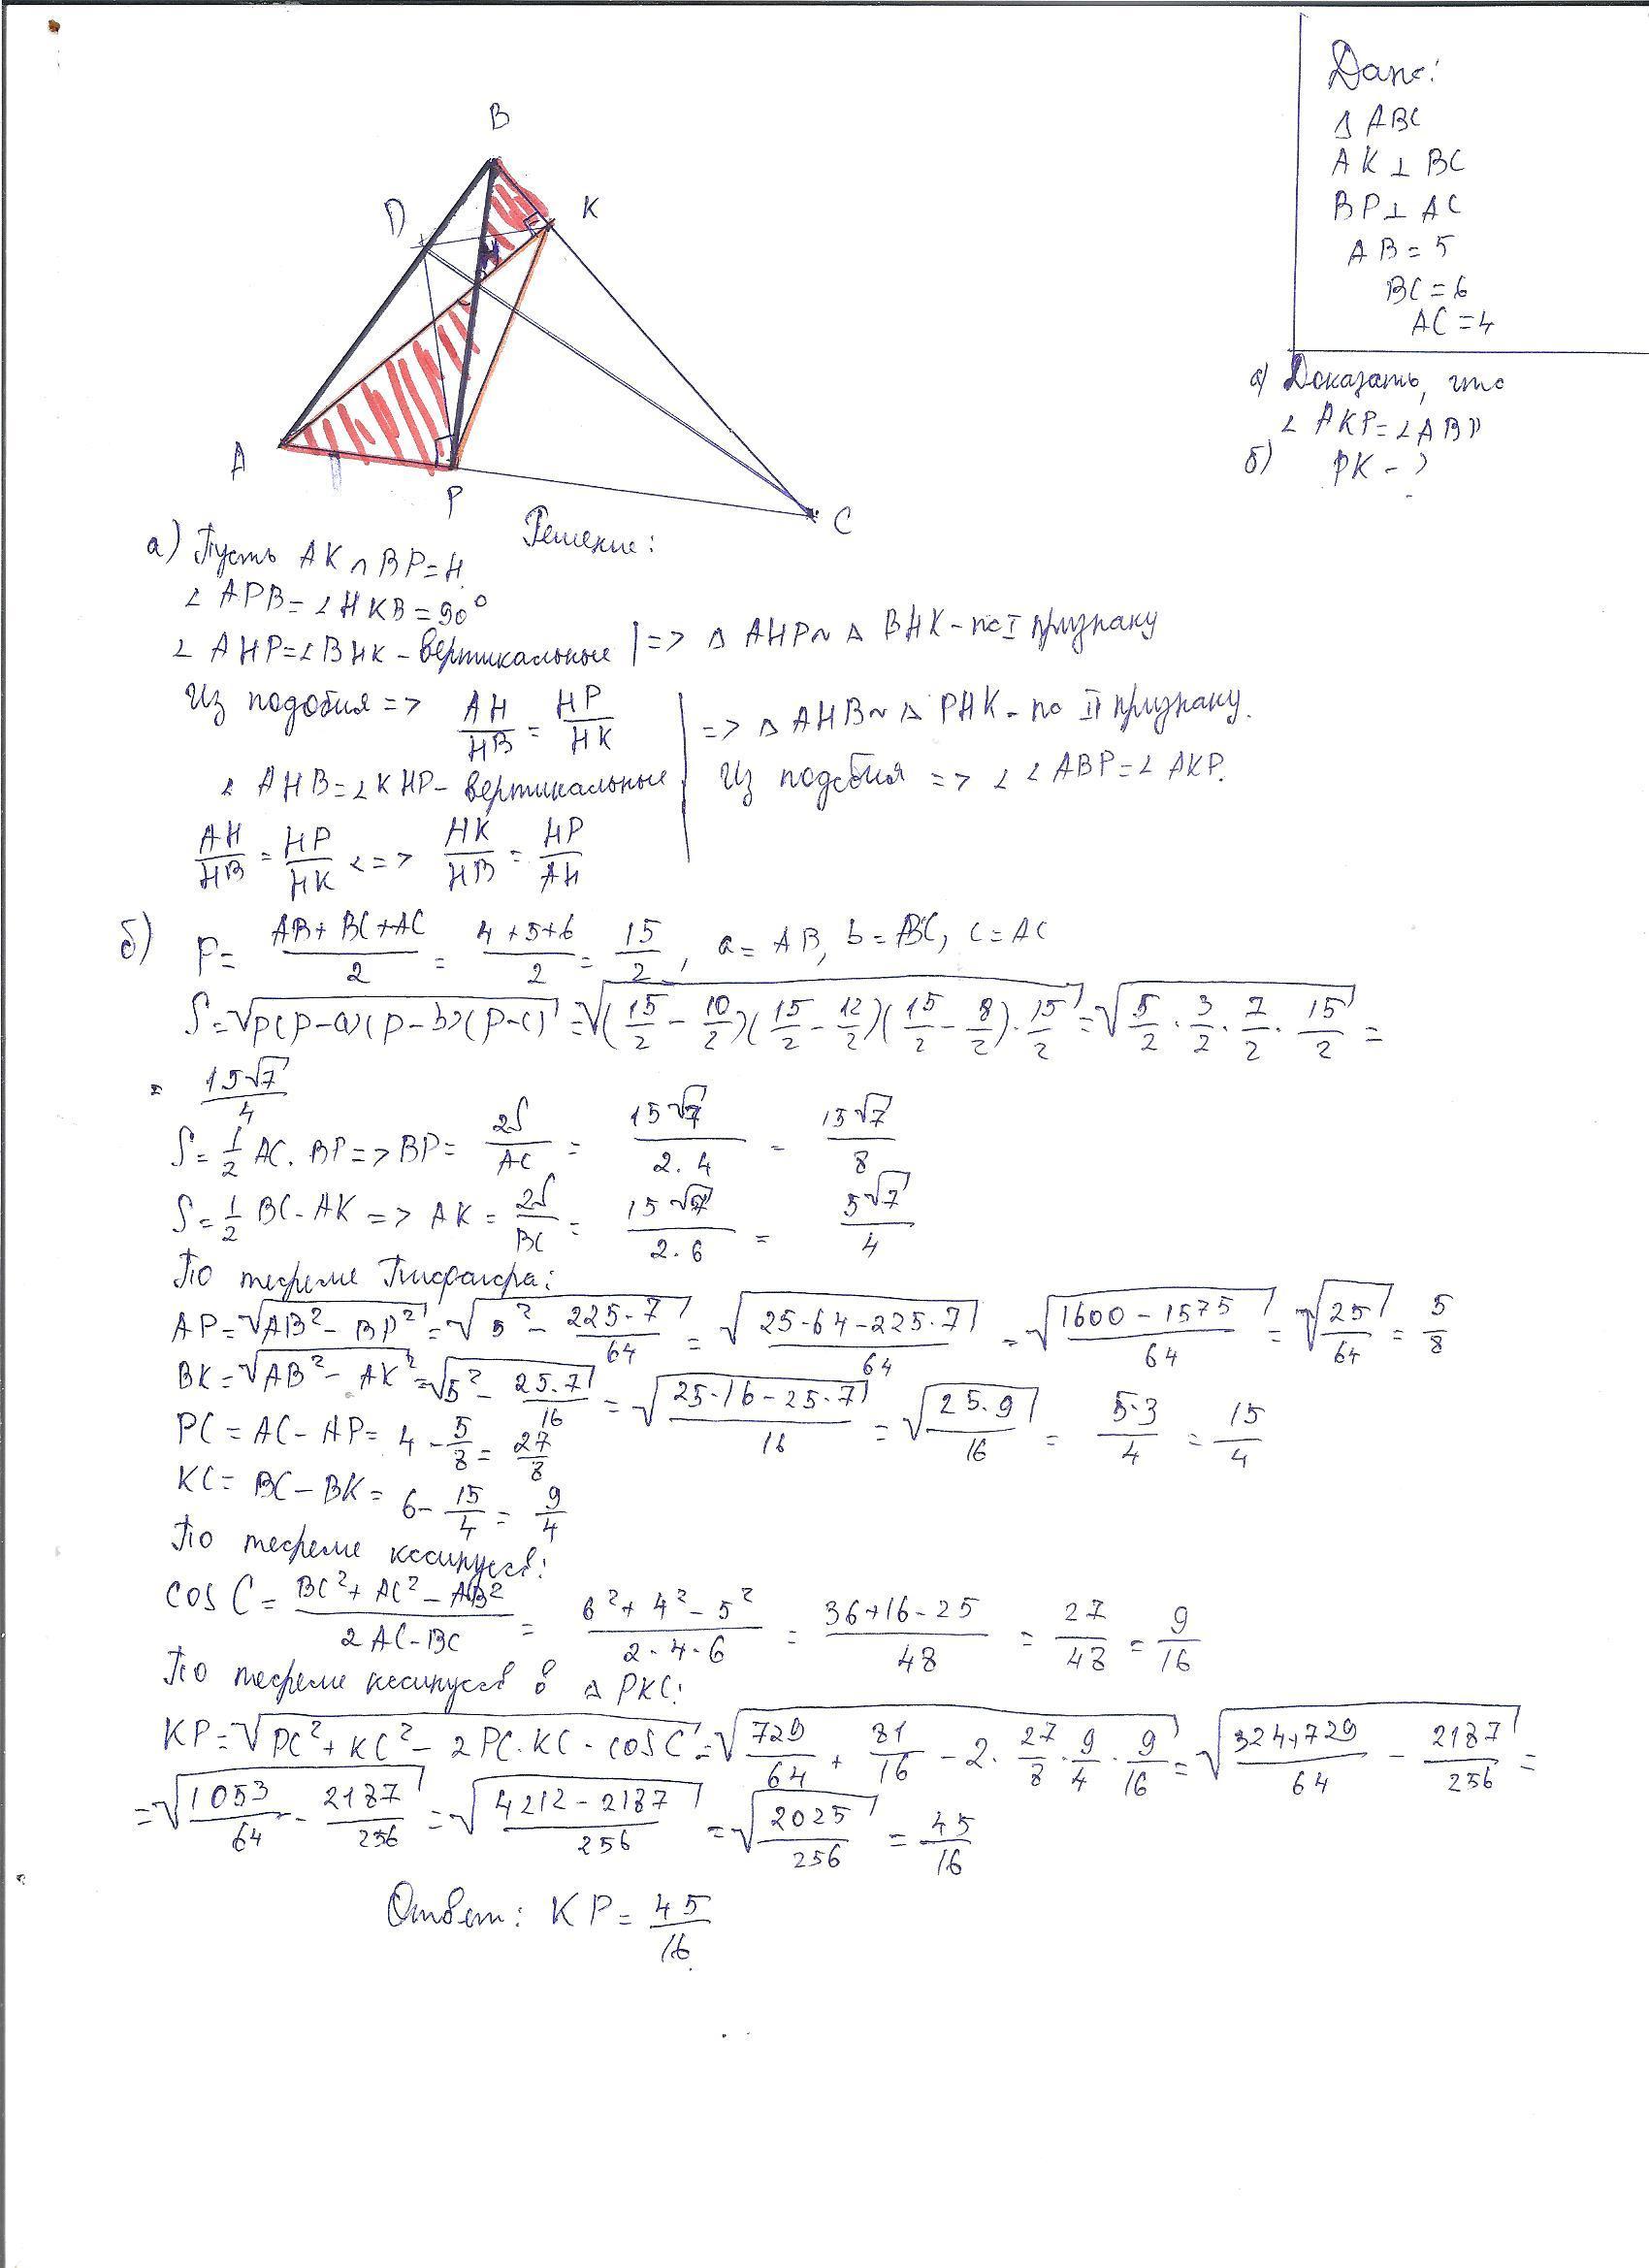 Дано:
Δ ABC
AK ⊥ BC
BP ⊥ AC
AB = 5
BC = 6
AC = 4
а) Доказать, что
∠ AKP = ∠ ABP
б) PK - ?
B
D
K
H
A
P
C
Решение:
а) Пусть AK ∩ BP = H
∠ APB = ∠ HKB = 90°
∠ AHP = ∠ BHK - вертикальные | => Δ AHP ~ Δ BHK - по I признаку
Из подобия => AH/HB = HP/HK | => Δ AHB ~ Δ PHK - по II признаку.
∠ AHB = ∠ KHP - вертикальные | Из подобия => ∠ ∠ ABP = ∠ AKP.
AH/HB = HP/HK <=> HK/HB = HP/AH
б) P = (AB + BC + AC)/2 = (4 + 5 + 6)/2 = 15/2, a = AB, b = BC, c = AC
S = √(p(p-a)(p-b)(p-c)) = √((15/2 - 10/2)(15/2 - 12/2)(15/2 - 8/2) · 15/2) = √(5/2 · 3/2 · 7/2 · 15/2) =
= 15√7/4
S = 1/2 AC · BP => BP = 2S/AC = 15√7/(2·4) = 15√7/8
S = 1/2 BC · AK => AK = 2S/BC = 15√7/(2·6) = 5√7/4
По теореме Пифагора:
AP = √(AB² - BP²) = √(5² - 225·7/64) = √((25·64 - 225·7)/64) = √((1600 - 1575)/64) = √(25/64) = 5/8
BK = √(AB² - AK²) = √(5² - 25·7/16) = √((25·16 - 25·7)/16) = √(25·9/16) = 5·3/4 = 15/4
PC = AC - AP = 4 - 5/8 = 27/8
KC = BC - BK = 6 - 15/4 = 9/4
По теореме косинусов:
cos C = (BC² + AC² - AB²)/(2 AC · BC) = (6² + 4² - 5²)/(2·4·6) = (36 + 16 - 25)/48 = 27/48 = 9/16
По теореме косинусов в Δ PKC:
KP = √(PC² + KC² - 2PC · KC · cos C) = √(729/64 + 81/16 - 2 · 27/8 · 9/4 · 9/16) = √((324+729)/64 - 2187/256) =
= √(1053/64 - 2187/256) = √((4212 - 2187)/256) = √(2025/256) = 45/16
Ответ: KP = 45/16